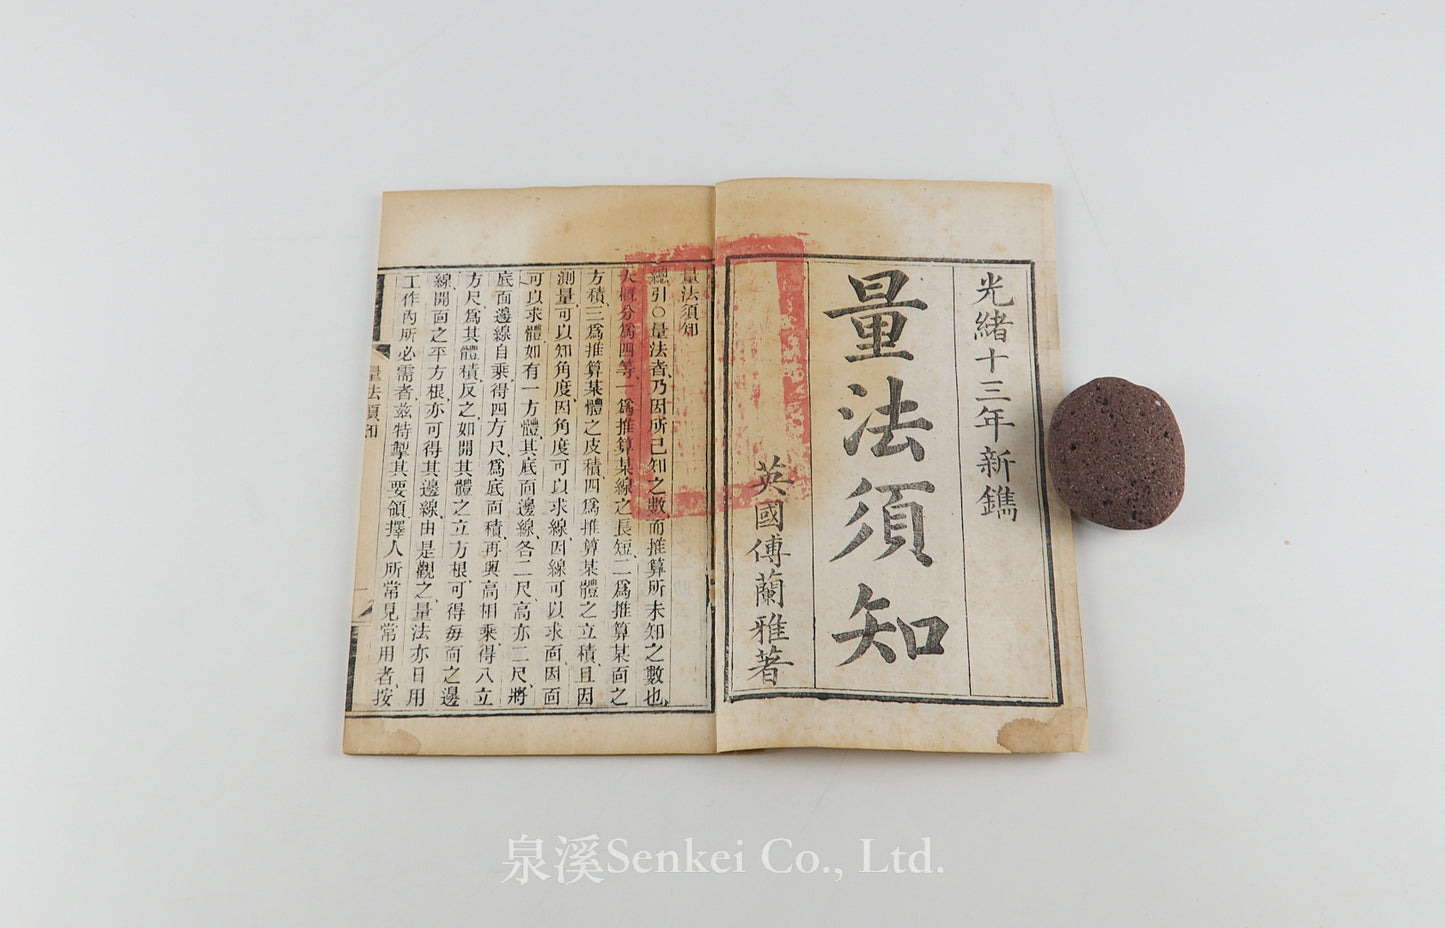 光緒十三年新鐫
量法須知
英國傅蘭雅著
量法須知
總引○量法者、乃因所已知之數、而推算所未知之數也、
大概分爲四等、一爲推算某線之長短、二爲推算某面之
方積、三爲推算某體之皮積、四爲推算某體之立積、且因
測量、可以知角度、因角度可以求線、因線可以求面、因面
可以求體、如有一方體、其底面邊線、各二尺、高亦二尺、將
底面邊線自乘、得四方尺、爲底面積、再與高相乘、得八立
方尺、爲其體積、反之、如開其體之立方根、可得每面之邊
線、開面之平方根、亦可得其邊線、由是觀之、量法亦日用
工作內所必需者、茲特掣其要領、擇人所常見常用者、按
量法須知
泉溪Senkei Co., Ltd.